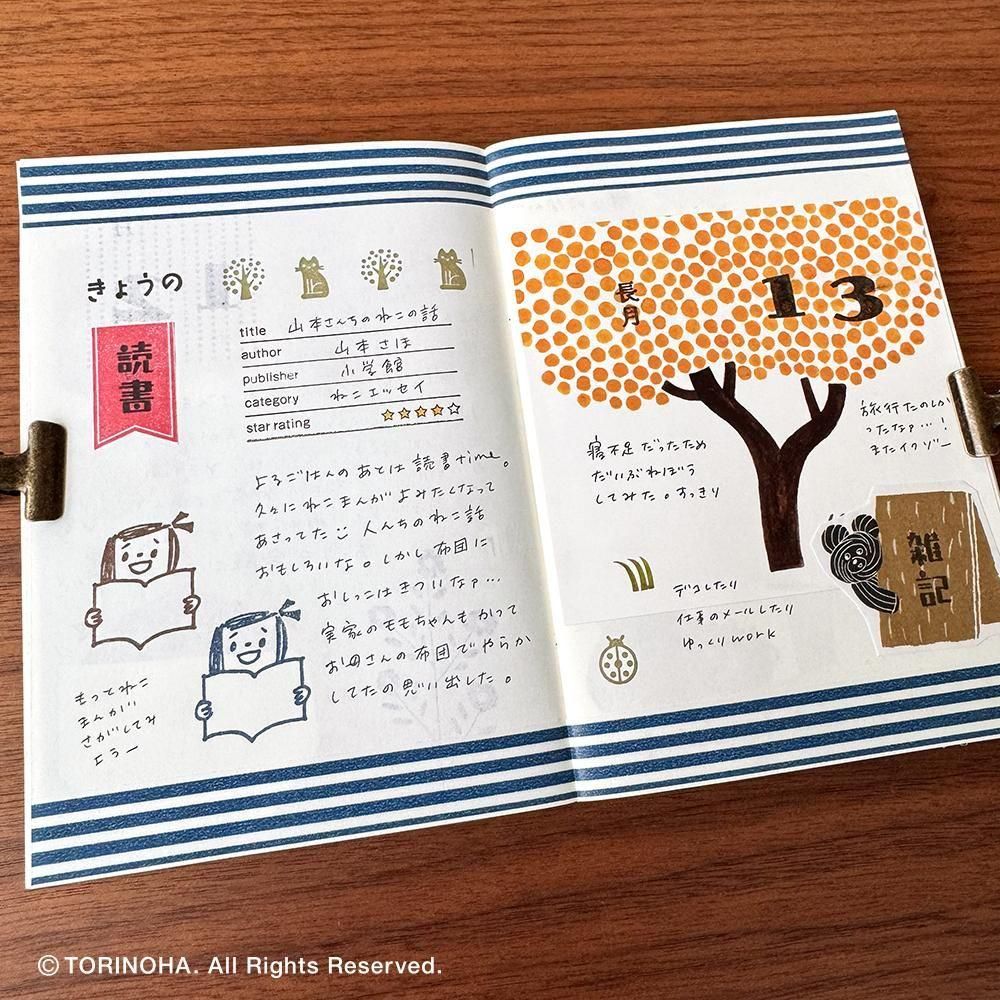 きょうの
読書
title 山本さんちのねこの話
author 山本さほ
publisher 小学館
category ねこエッセイ
star rating ★★★★☆
よるごはんのあとは読書time。
久々にねこまんがよみたくなって
あさってた 人んちのねこ話
おもしろいな。しかし布団に
おしっこはきついなァ…
実家のモモちゃんもかって
お母さんの布団でやらか
してたの思い出した。
もっとねこ
まんが
さがしてみ
よう一
長月
13
寝不足だったため
だいぶねぼう
してみた。すっきり
旅行たのしか
ったなァ…!
またイクゾー
雑・記
デコしたり
仕事のメールしたり
ゆっくりwork
©TORINOHA. All Rights Reserved.